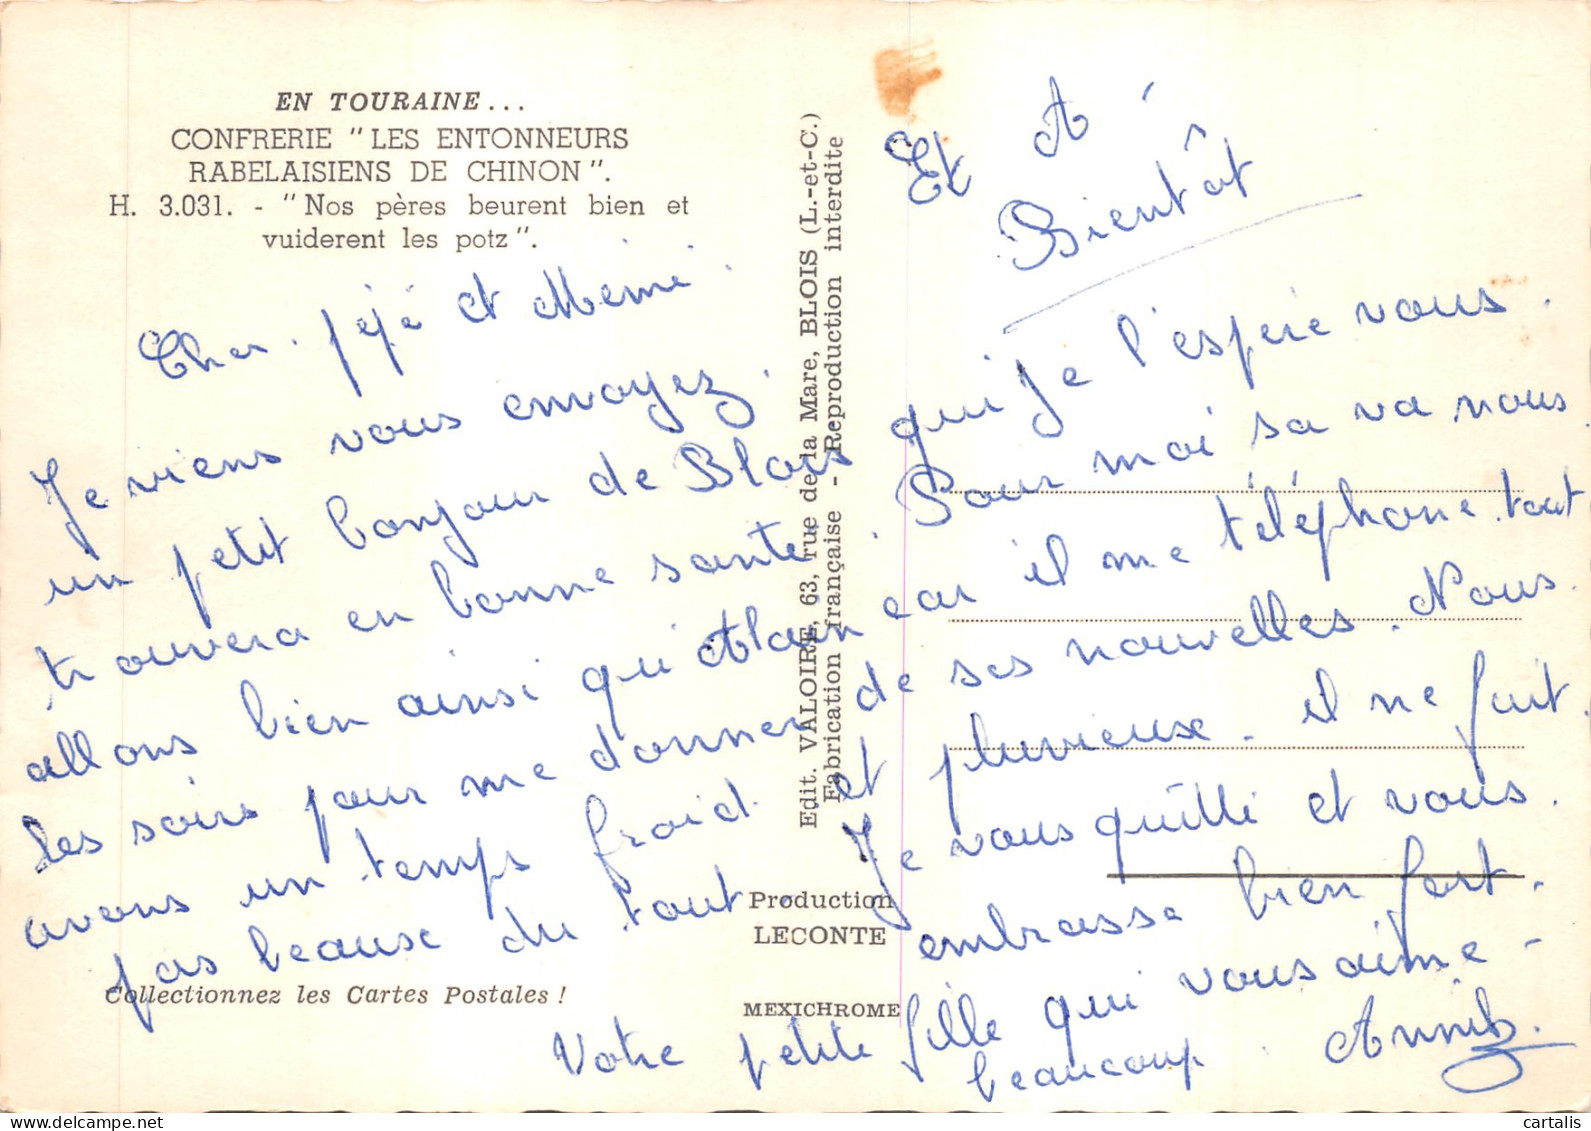 EN TOURAINE...
CONFRERIE "LES ENTONNEURS
RABELAISIENS DE CHINON".
H. 3.031. - "Nos pères beurent bien et
vuiderent les potz".
Cher. pépé et Mémé.
Je viens vous envoyez.
un petit bonjour de Blois qui je l'espére vous.
trouvera en bonne santé. Pour moi sa va nous
allons bien ainsi qu'Alain car il me téléphone tout
les soirs pour me donner de ses nouvelles. Nous.
avons un temps froid et pluvieuse. il ne fait.
pas beause du tout Je vous quitte et vous.
embrasse bien fort.
Votre petite fille qui vous aime -
beaucoup. Annick.
Et À
Bientôt
Edit. VALOIRE, 63, rue de la Mare, BLOIS (L.-et-C.)
Fabrication française - Reproduction interdite
Production
LECONTE
MEXICHROME
Collectionnez les Cartes Postales !
cartalis